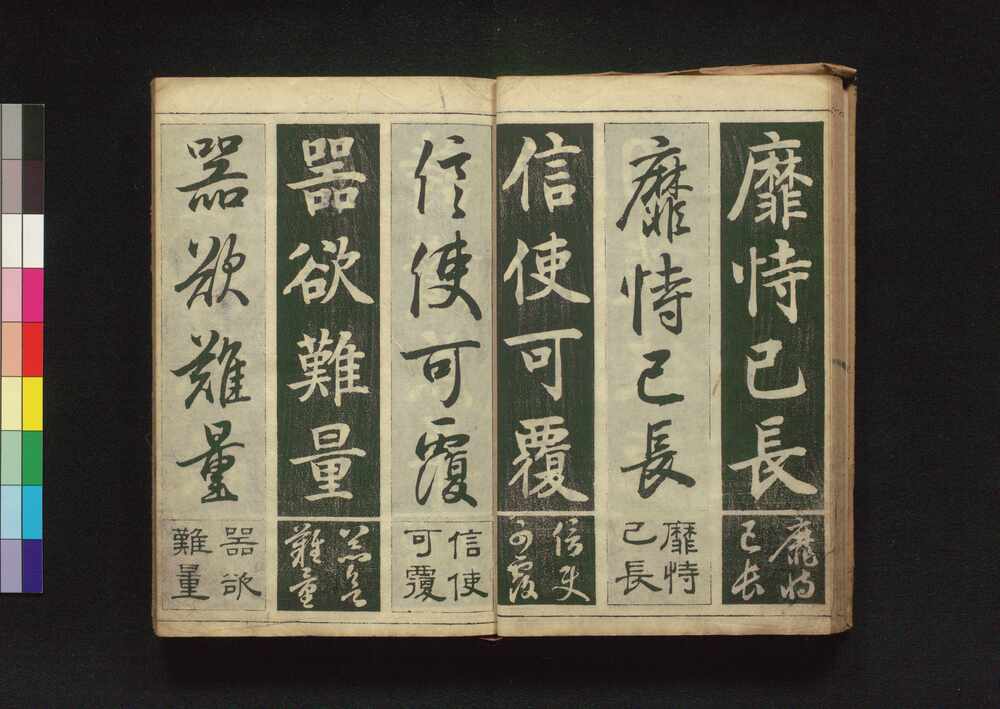 靡恃己長
靡恃己長
靡恃己長
靡恃己長
信使可覆
信使可覆
信使可覆
信使可覆
器欲難量
器欲難量
器欲難量
器欲難量